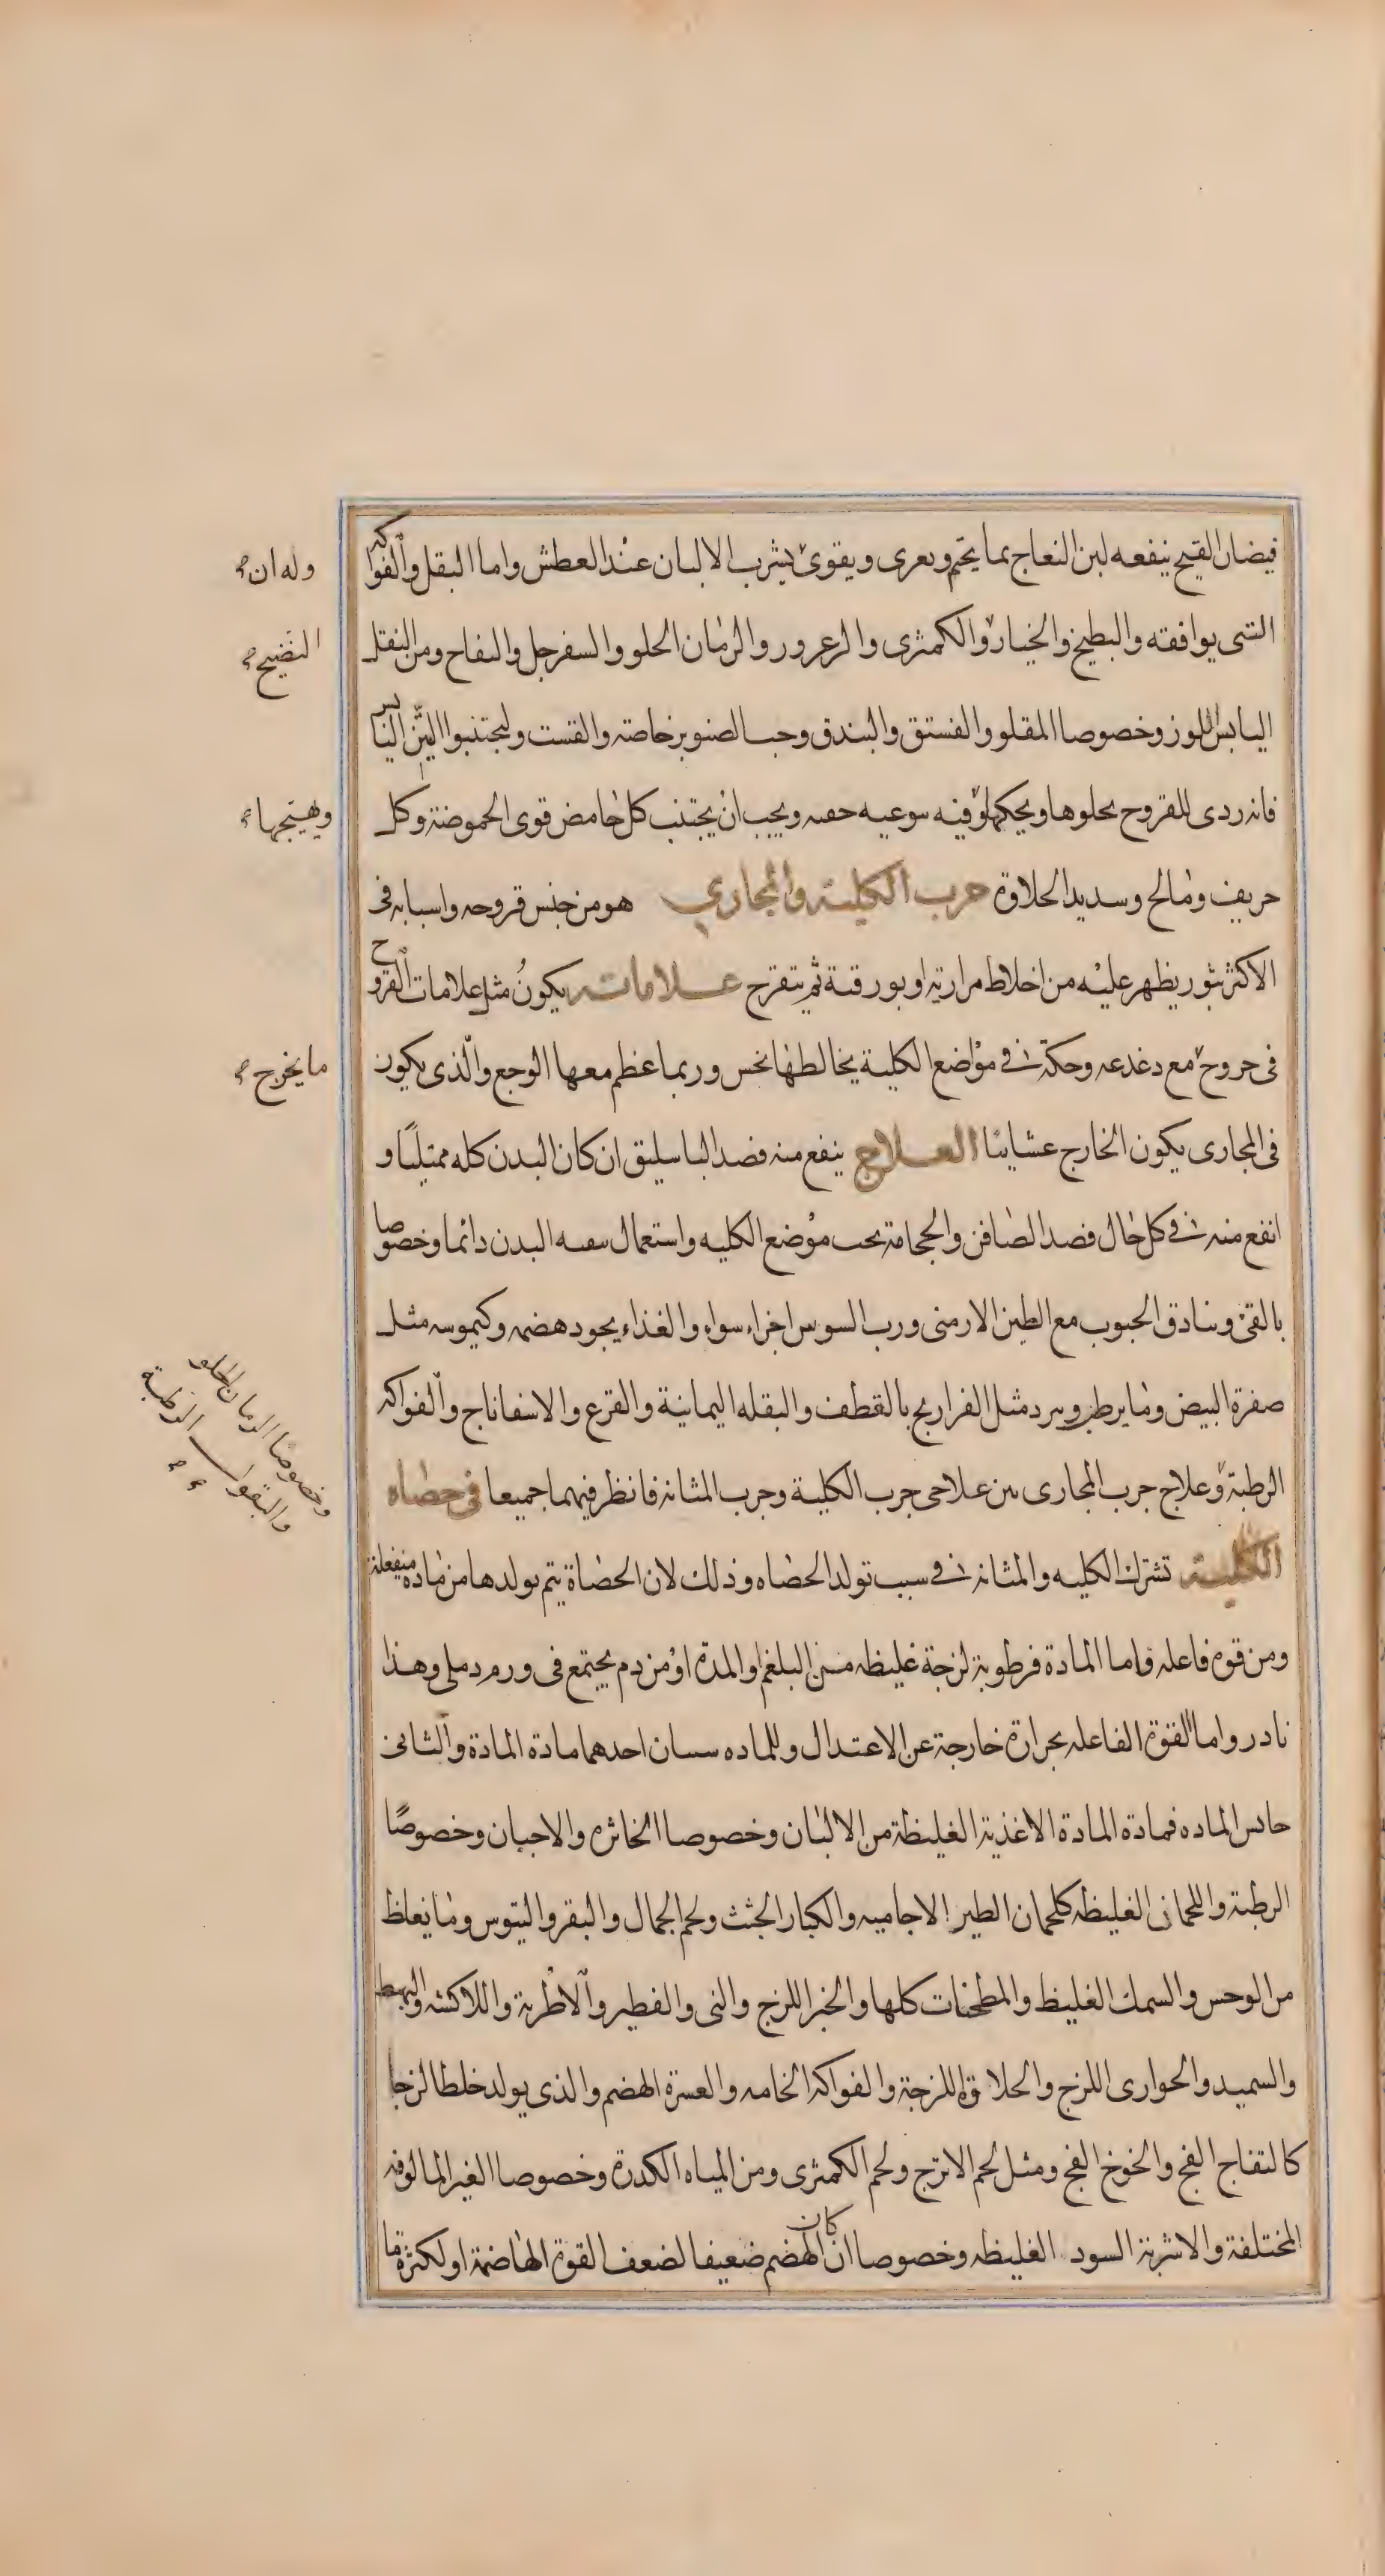 فيضان القيح ينفعه لبن النعاج بما يختم ويعرى ويقوى يشرب الالبان عند العطش واما البقل والفواكه
التى يوافقه والبطيخ والخيار والكمثرى والزعرور والرمان الحلو والسفرجل والتفاح ومن النقل
اليابس اللوز وخصوصا المقلو والفستق والبندق وحب الصنوبر خاصة والقست وليجتنبوا التين اليابس
فانه ردى للقروح يجلوها ويحكها وفيه ويجب ان يجتنب كل حامض قوى الحموضة وكل
حريف ومالح وسديد الحلاوة جرب الكلية والمجاري هو من جنس قروحه واسبابه فى
الاكثر بثور يظهر عليه من اخلاط مرارية او بورقية ثم يتقرح علاماته يكون مثل علامات القروح
فى حروح مع دغدغه وحكة فى مواضع الكلية يخالطها نخس وربما عظم معها الوجع والذى يكون
فى المجارى يكون الخارج غشايا العلاج ينفع منه فصد الباسليق ان كان البدن كله ممتليا و
انفع منه فى كل حال فصد الصافن والحجامة تحت موضع الكليه واستعمال سقيه البدن دائما وخصوصا
بالقئ وبنادق الحبوب مع الطين الارمنى ورب السوس اجزاء سواء والغذاء يجود هضمه وكيموسه مثل
صفرة البيض وما يرطب ويبرد مثل الفراريج بالقطف والبقله اليمانية والقرع والاسفاناج والفواكه
الرطبة وعلاج جرب المجارى بين علاجى جرب الكلية وجرب المثانه فانظر فيهما جميعا فى حصاه
الكلية تشترك الكليه والمثانه فى سبب تولد الحصاه وذلك لان الحصاة يتم تولدها من ماده منفعلة
ومن قوه فاعله واما المادة فرطوبة لزجة غليظه من البلغم او المدة او من دم يجتمع فى ورم دملى وهذا
نادر واما القوة الفاعله بحرارة خارجة عن الاعتدال وللماده سببان احدهما مادة المادة والثانى
حابس الماده فمادة المادة الاغذية الغليظة من الالبان وخصوصا الخاثره والاجبان وخصوصا
الرطبة واللحمان الغليظه كلحمان الطير الاجاميه والكبار الجثث ولحم الجمال والبقر والتيوس وما يغلظ
من الوحس والسمك الغليظ والمطحنات كلها والخبز اللزج والنى والفطير والاطرية واللاكشه والبهط
والسميد والحوارى اللزج والحلاوة اللزجة والفواكه الخامه والعسرة الهضم والذى يولد خلطا لزجا
كالتفاح الفج والخوخ الفج ومثل لحم الاترج ولحم الكمثرى ومن المياه الكدرة وخصوصا الغير المالوفه
المختلفة والاشربة السود الغليظه وخصوصا ان كان الهضم ضعيفا لضعف القوة الهاضمة او لكثرة ما
وله ان
النضيج
ويهيجها
ما يخرج
وخصوصا الرمان الحلو
والبقول الرطبة